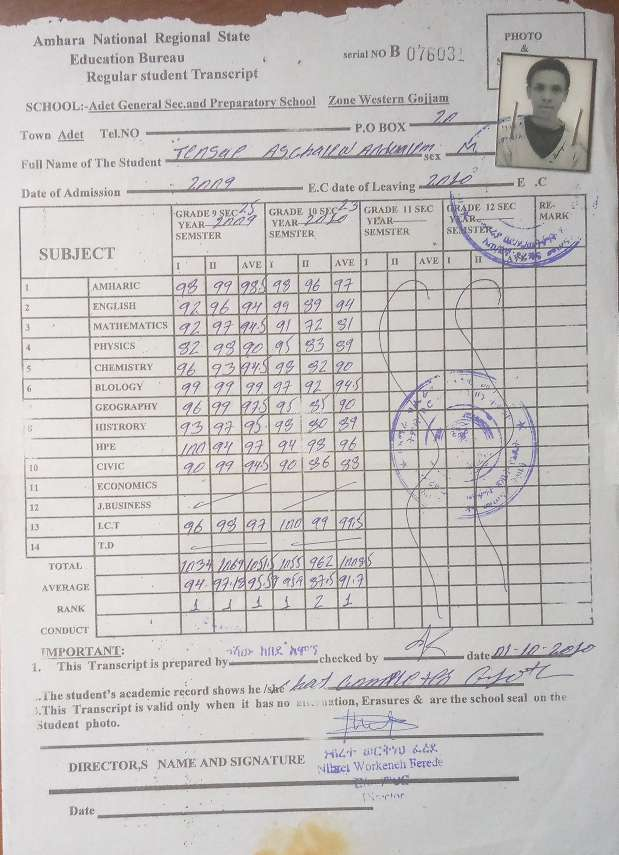 Amhara National Regional State
Education Bureau
Regular student Transcript
serial NO B 076031
PHOTO
&
SCHOOL:-Adet General Sec.and Preparatory School Zone Western Gojjam
Town Adet Tel.NO P.O BOX 20
Full Name of The Student sex M
Date of Admission 2009 E.C date of Leaving 2010 E .C
SUBJECT GRADE 9 SEC 25 GRADE 10 SEC 23 GRADE 11 SEC GRADE 12 SEC RE-
YEAR 2009 YEAR 2010 YEAR YEAR MARK
SEMSTER SEMSTER SEMSTER SEMSTER
I II AVE I II AVE I II AVE I II
1 AMHARIC 98 99 98.5 98 96 97
2 ENGLISH 92 96 94 99 89 94
3 MATHEMATICS 92 97 94.5 91 72 81
4 PHYSICS 82 98 90 95 83 89
5 CHEMISTRY 96 93 94.5 98 82 90
6 BLOLOGY 99 99 99 97 92 94.5
GEOGRAPHY 96 99 97.5 95 85 90
8 HISTRORY 93 97 95 98 80 89
HPE 100 94 97 94 98 96
10 CIVIC 90 99 94.5 90 86 88
11 ECONOMICS
12 J.BUSINESS
13 I.C.T 96 98 97 100 99 99.5
14 T.D
TOTAL 1034 1069 1051.5 1055 962 1008.5
AVERAGE 94 97.18 95.59 95.9 87.5 91.7
RANK 1 1 1 1 2 1
CONDUCT
IMPORTANT:
1. This Transcript is prepared by checked by date 01-10-2010
The student's academic record shows he /she
This Transcript is valid only when it has no Erasures & are the school seal on the
Student photo.
DIRECTOR,S NAME AND SIGNATURE
Workeneh Ferede
Director
Date